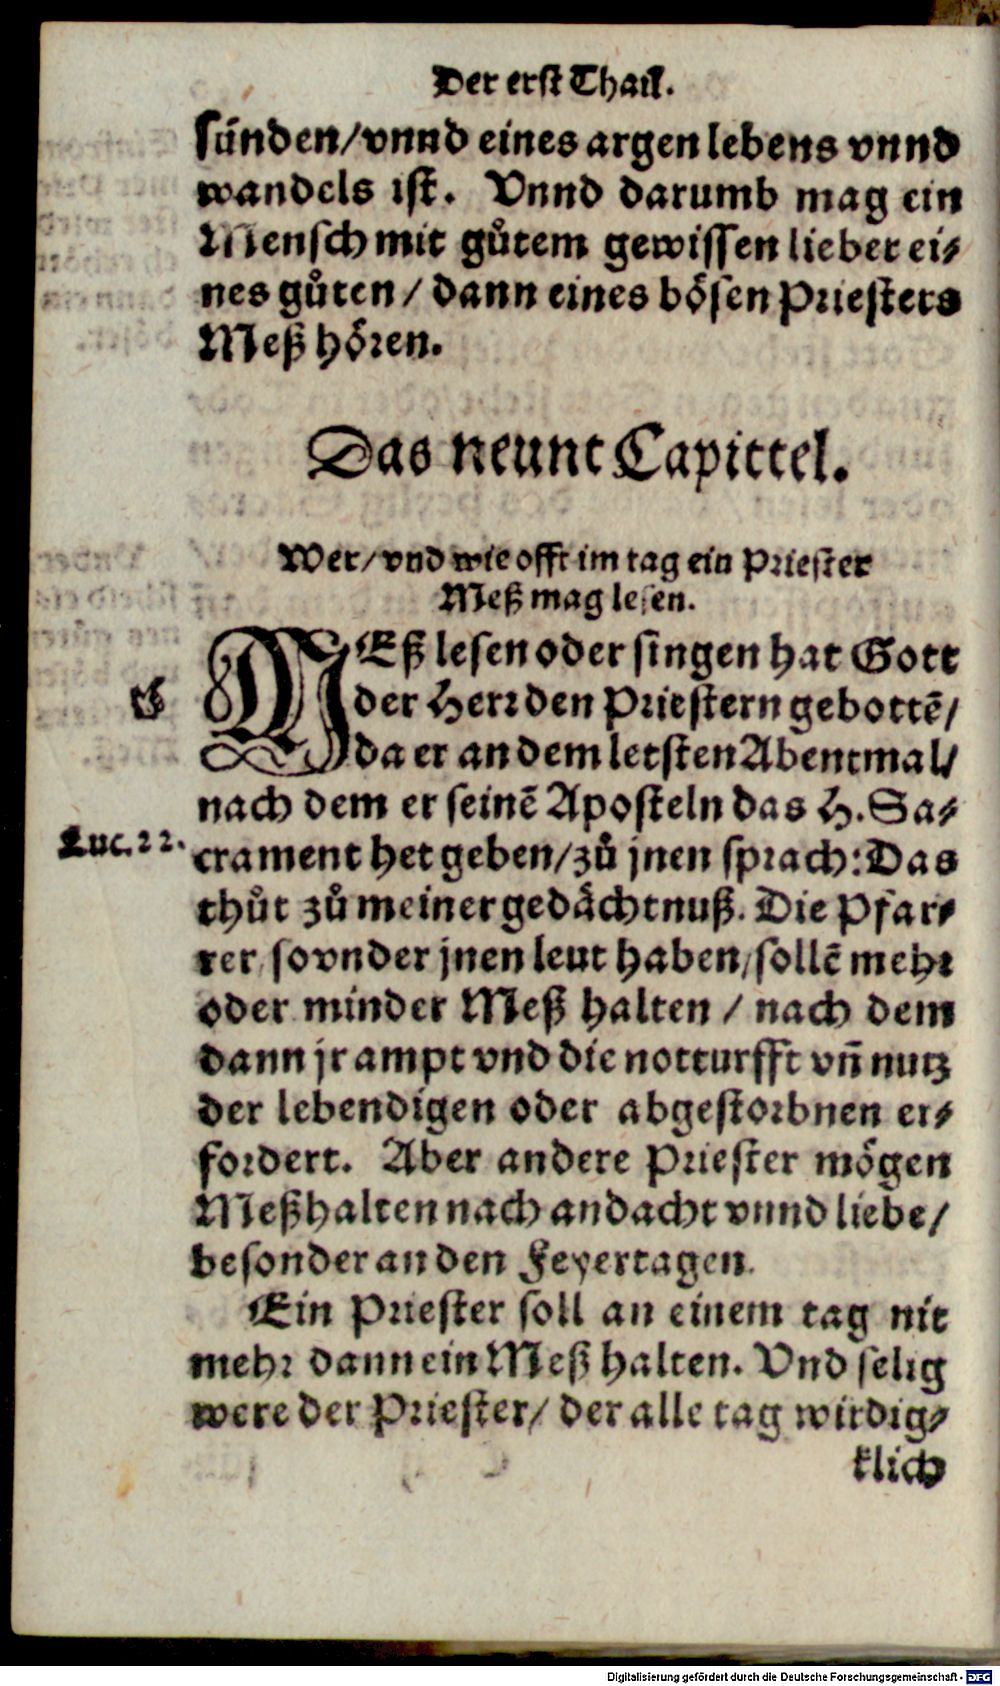 Der erst Thail.
sünden/vnnd eines argen lebens vnnd
wandels ist. Vnnd darumb mag ein
Mensch mit gůtem gewissen lieber ei⸗
nes gůten/ dann eines bösen Priesters
Meß hören.
Das neunt Capittel.
Wer/vnd wie offt im tag ein Priester
Meß mag lesen.
MEß lesen oder singen hat Gott
der Herr den Priestern gebottẽ/
da er an dem letsten Abentmal/
nach dem er seinẽ Aposteln das H. Sa⸗
Luc. 22.
crament het geben/zů jnen sprach: Das
thůt zů meiner gedächtnuß. Die Pfar⸗
rer so vnder jnen leut haben/sollẽ mehr
oder minder Meß halten / nach dem
dann jr ampt vnd die notturfft vñ nutz
der lebendigen oder abgestorbnen er⸗
fordert. Aber andere Priester mögen
Meß halten nach andacht vnnd liebe/
besonder an den Feyertagen.
Ein Priester soll an einem tag nit
mehr dann ein Meß halten. Vnd selig
were der Priester/ der alle tag wirdig⸗
klich
Digitalisierung gefördert durch die Deutsche Forschungsgemeinschaft - DFG